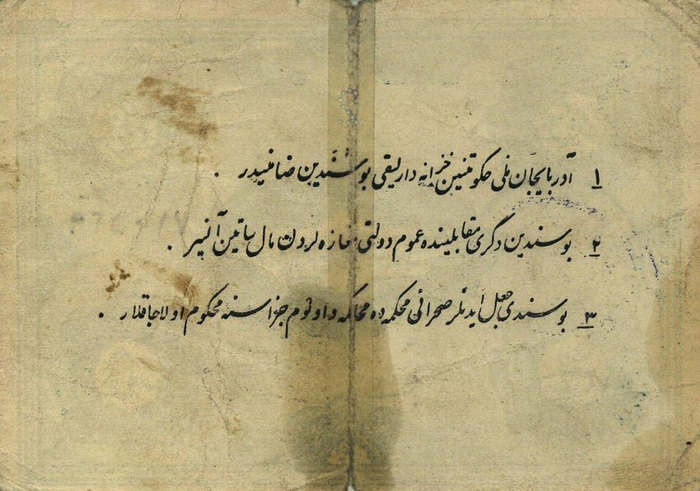 ۱ آذربایجان ملی حکومتنین خزانه دارلیقی بو سندین ضامنیدیر .
۲ بو سندین دگری مقابلینده عموم دولتی مغازه لردن مال ساتین آلنیر .
۳ بو سندی جعل ایدنلر صحرائی محکمه ده محاکمه و اولوم جزاسنه محکوم اولاجاقلار .